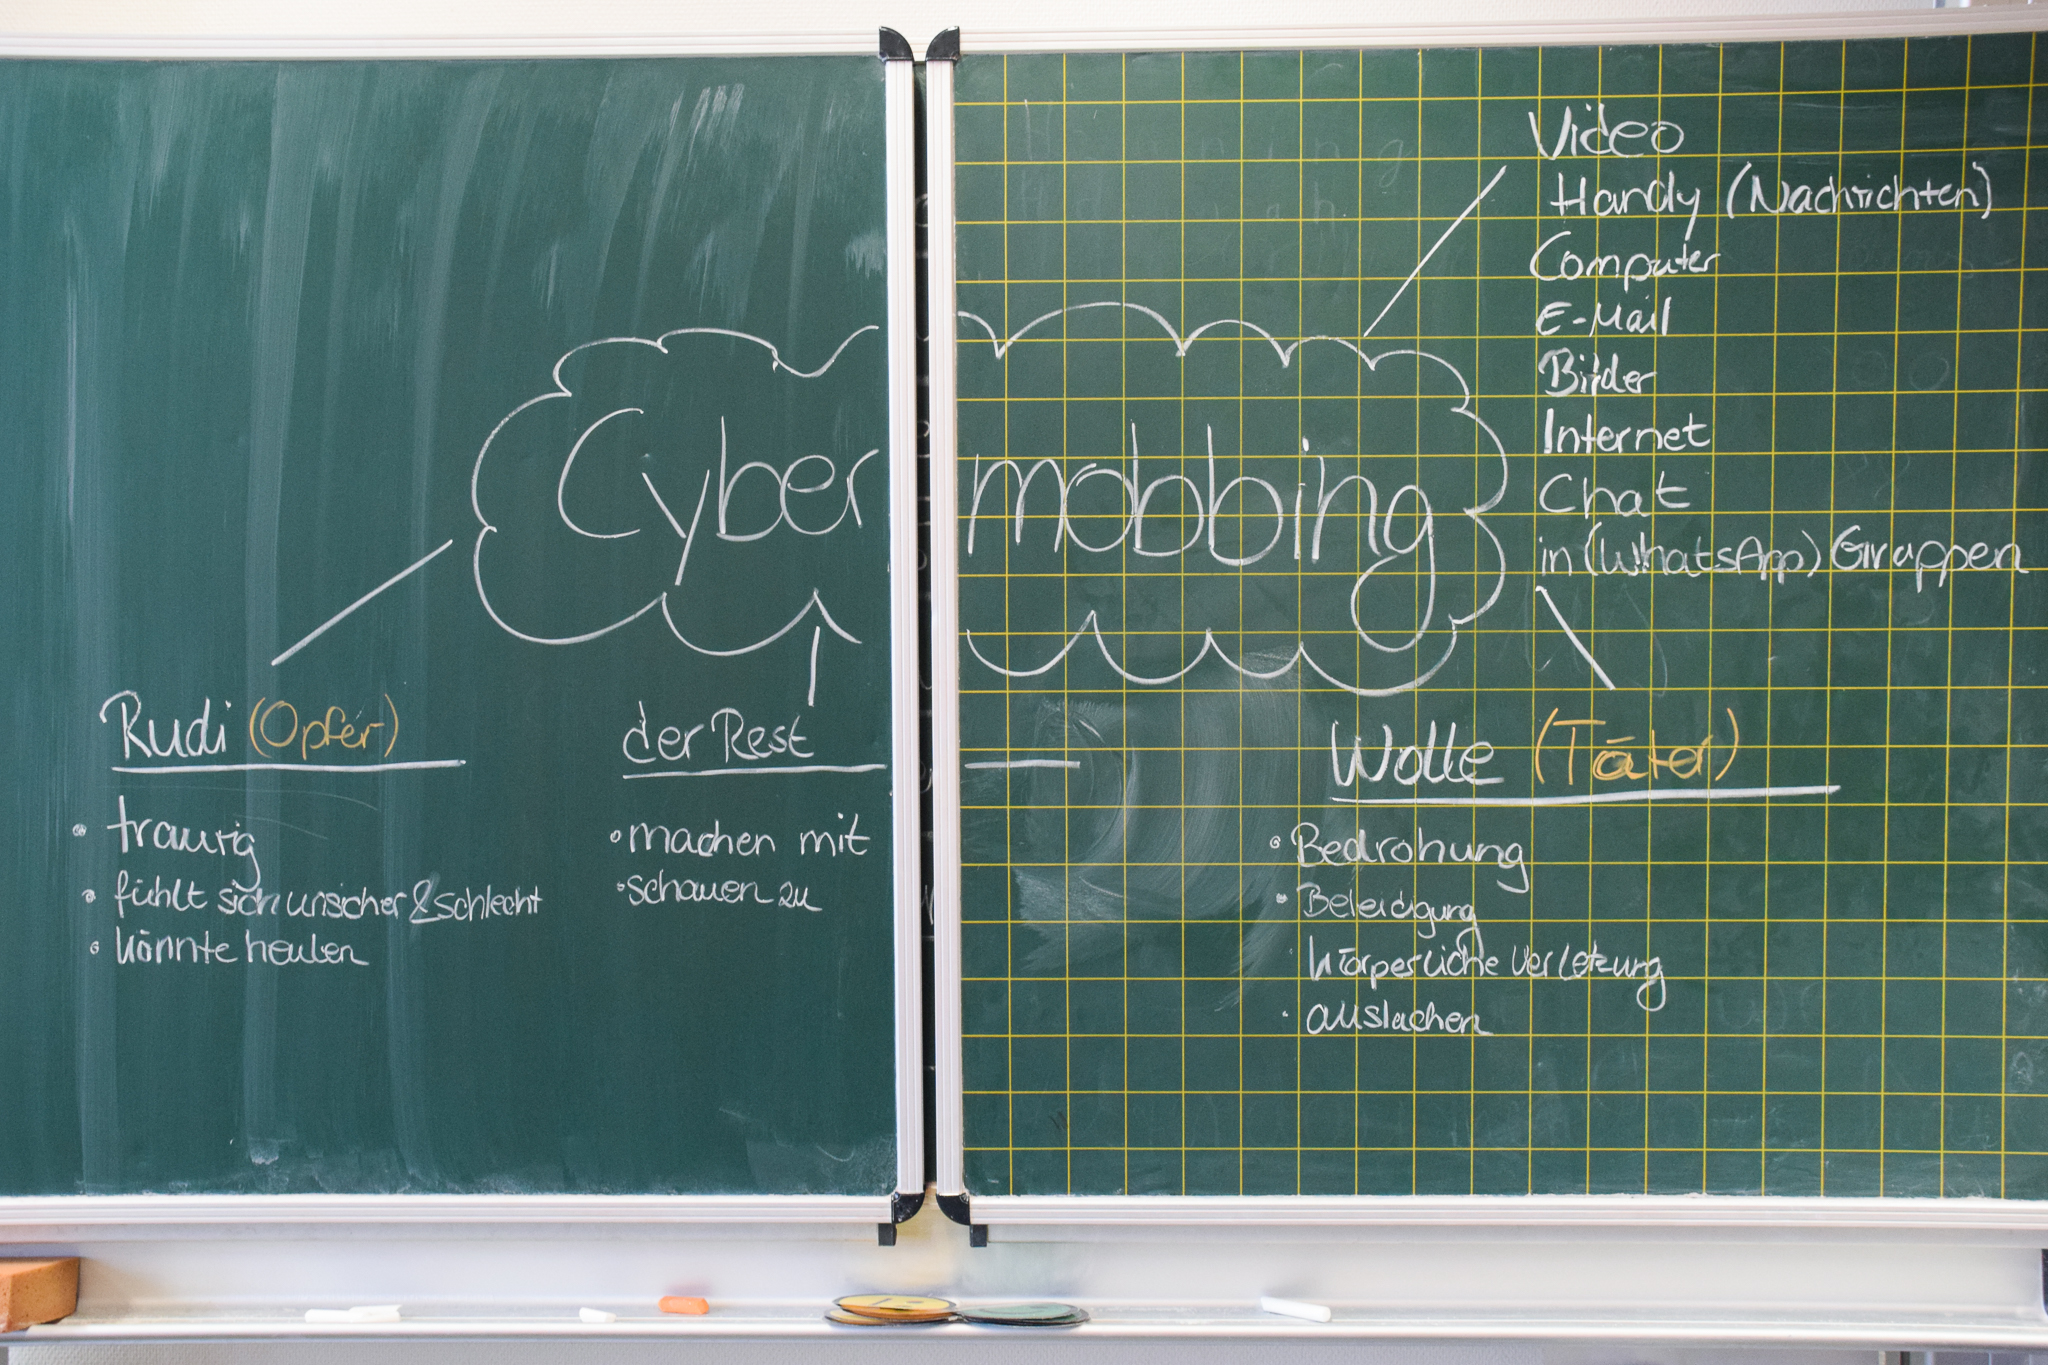 Video
Handy (Nachrichten)
Computer
E-Mail
Bilder
Internet
Chat
in (WhatsApp) Gruppen
Cybermobbing
Rudi (Opfer)
• traurig
• fühlt sich unsicher & schlecht
• könnte heulen
der Rest
• machen mit
• schauen zu
Wolle (Täter)
• Bedrohung
• Beleidigung
• körperliche Verletzung
• auslachen